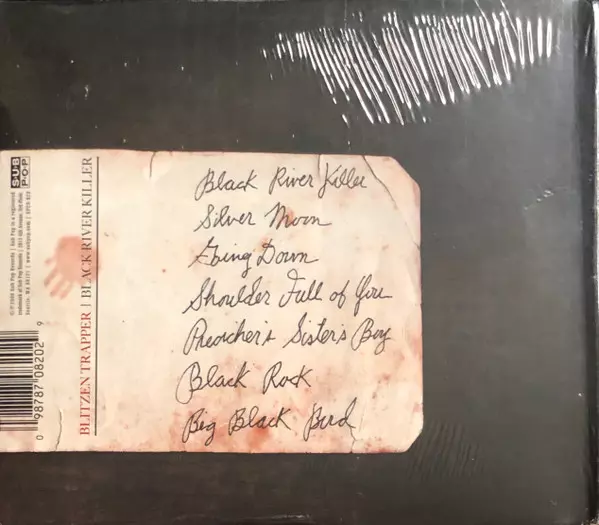 Black River Killer
Silver Moon
Going Down
Shoulder Full of You
Preacher's Sister's Boy
Black Rock
Big Black Bird
BLITZEN TRAPPER | BLACK RIVER KILLER
SUB
POP
0 98787 08202 9